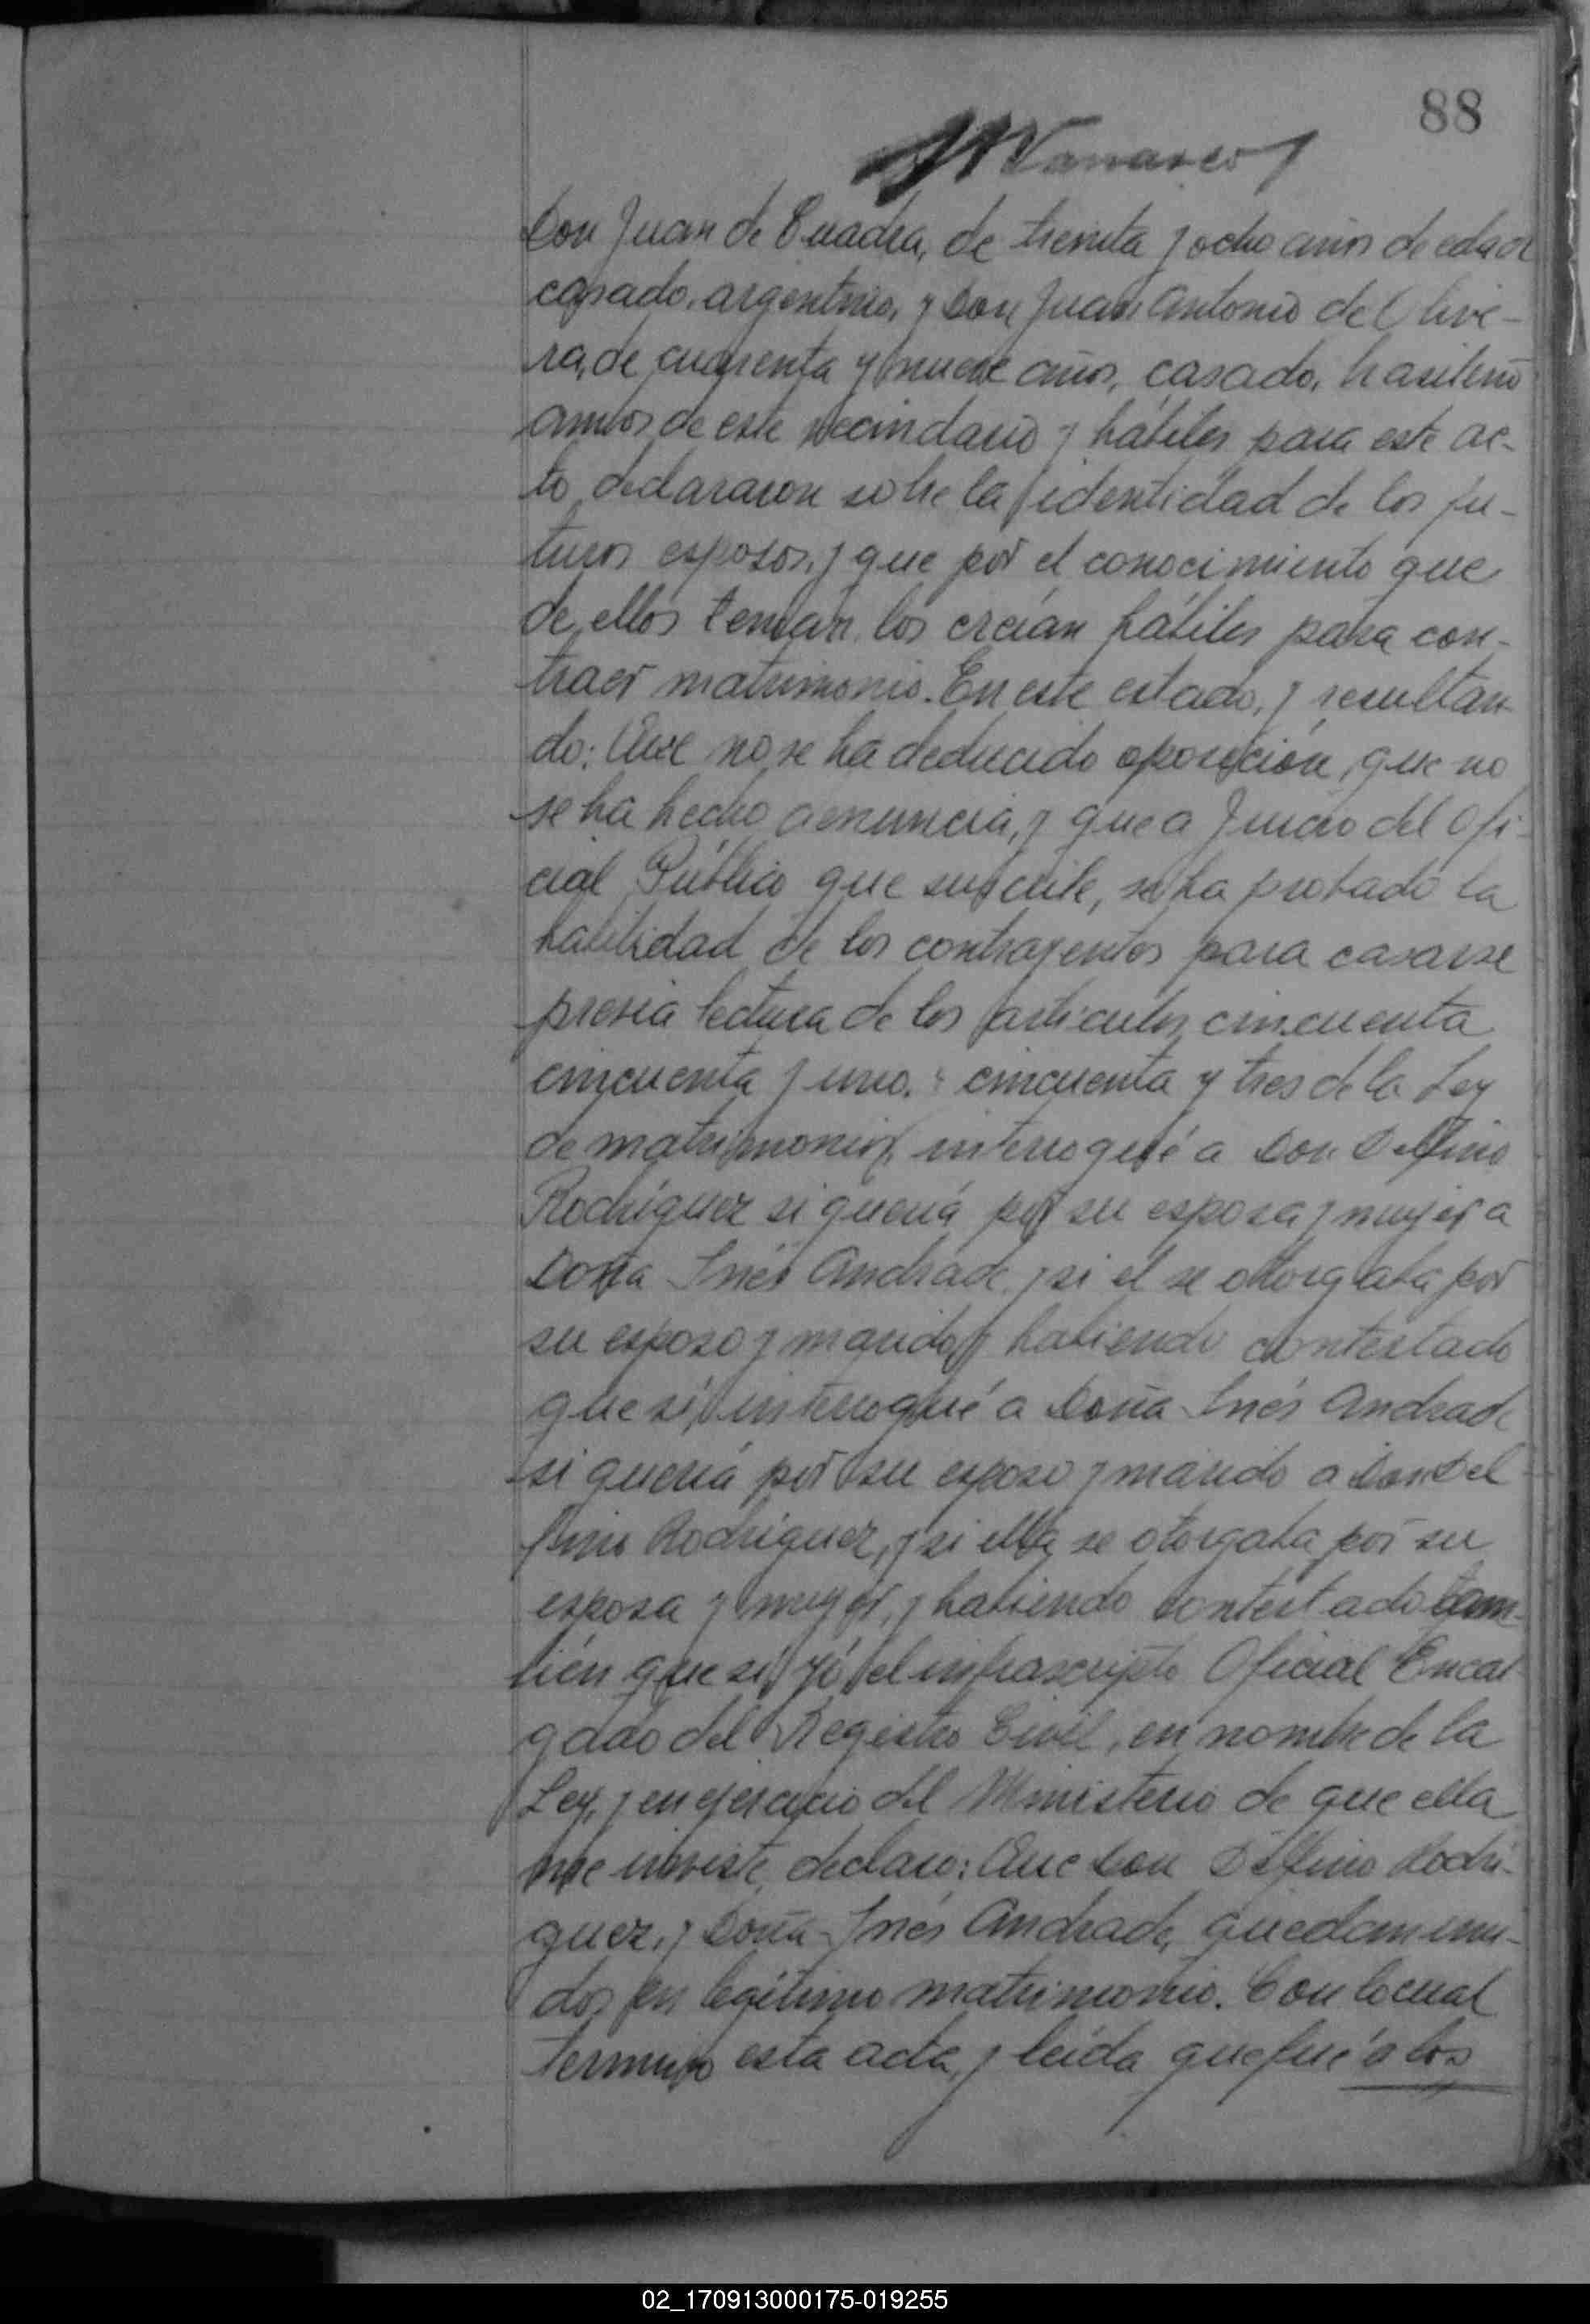 88
Don Juan de Cuadra, de treinta y ocho años de edad
casado, argentino, y Don Juan Antonio de Olive-
ra, de cuarenta y nueve años, casado, brasileño
ambos de este vecindario y hábiles para este ac-
to, declararon sobre la identidad de los fu-
turos esposos, y que por el conocimiento que
de ellos tenían, los creían hábiles para con-
traer matrimonio. En este estado, y resultan-
do: Que no se ha deducido oposición, que no
se ha hecho denuncia, y que a juicio del Ofi-
cial Público que suscribe, se ha probado la
habilidad de los contrayentes para casarse
previa lectura de los artículos cincuenta
cincuenta y uno y cincuenta y tres de la Ley
de matrimonio, interrogué a Don Delfino
Rodríguez si quería por su esposa y mujer a
Doña Inés Andrade, y si él se otorgaba por
su esposo y marido, y habiendo contestado
que sí, interrogué a Doña Inés Andrade
si quería por su esposo y marido a Don Del
fino Rodríguez, y si ella se otorgaba por su
esposa y mujer, y habiendo contestado tam-
bién que sí, yó, el infrascripto Oficial Encar
gado del Registro Civil, en nombre de la
Ley, y en ejercicio del Ministerio de que ella
me inviste, declaro: Que Don Delfino Rodrí-
guez, y Doña Inés Andrade, quedan uni-
dos en legítimo matrimonio. Con lo cual
terminó esta acta, y leída que fué a los
02_170913000175-019255